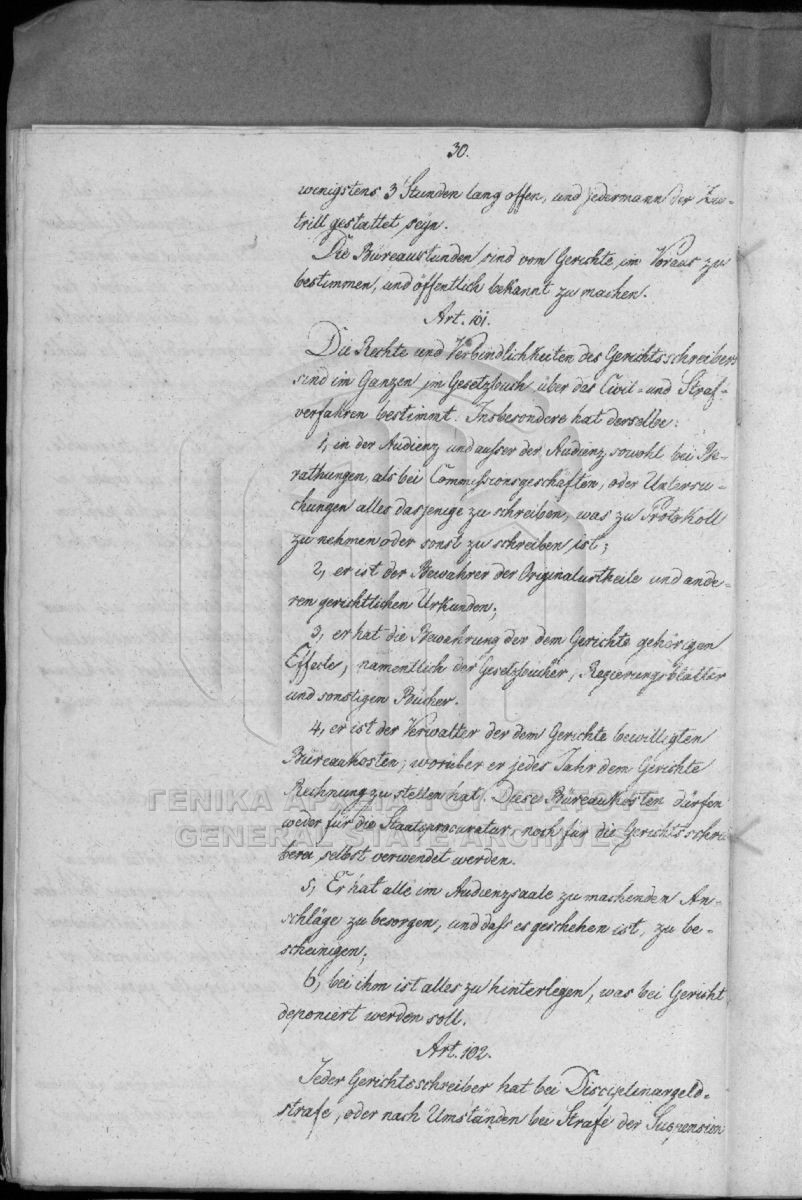 30.
wenigstens 3 Stunden lang offen, und jedermann der Zu-
tritt gestattet seyn.
Die Büreaustunden sind vom Gerichte im Voraus zu
bestimmen, und öffentlich bekannt zu machen.
Art. 101.
Die Rechte und Verbindlichkeiten des Gerichtsschreibers
sind im Ganzen im Gesetzbuch über das Civil- und Straf-
verfahren bestimmt. Insbesondere hat derselbe:
1, in der Audienz und ausser der Audienz sowohl bei Be-
rathungen, als bei Commissionsgeschäften, oder Untersu-
chungen alles dasjenige zu schreiben, was zu Protokoll
zu nehmen oder sonst zu schreiben ist;
2, er ist der Bewahrer der Originalurtheile und ande-
ren gerichtlichen Urkunden;
3, er hat die Bewahrung der dem Gerichte gehörigen
Effecte, namentlich der Gesetzbücher, Regierungsblätter
und sonstigen Bücher.
4, er ist der Verwalter der dem Gerichte bewilligten
Büreaukosten, worüber er jedes Jahr dem Gerichte
Rechnung zu stellen hat. Diese Büreaukosten dürfen
weder für die Staatsprocuratur, noch für die Gerichtsschrei
berei selbst verwendet werden.
5, Er hat alle im Audienzsaale zu machenden An-
schläge zu besorgen, und dass es geschehen ist, zu be-
scheinigen.
6, bei ihm ist alles zu hinterlegen, was bei Gericht
deponiert werden soll.
Art. 102.
Jeder Gerichtsschreiber hat bei Disciplinargeld-
strafe, oder nach Umständen bei Strafe der Suspension
ΓΕΝΙΚΑ ΑΡΧΕΙΑ ΤΟΥ ΚΡΑΤΟΥΣ
GENERAL STATE ARCHIVES